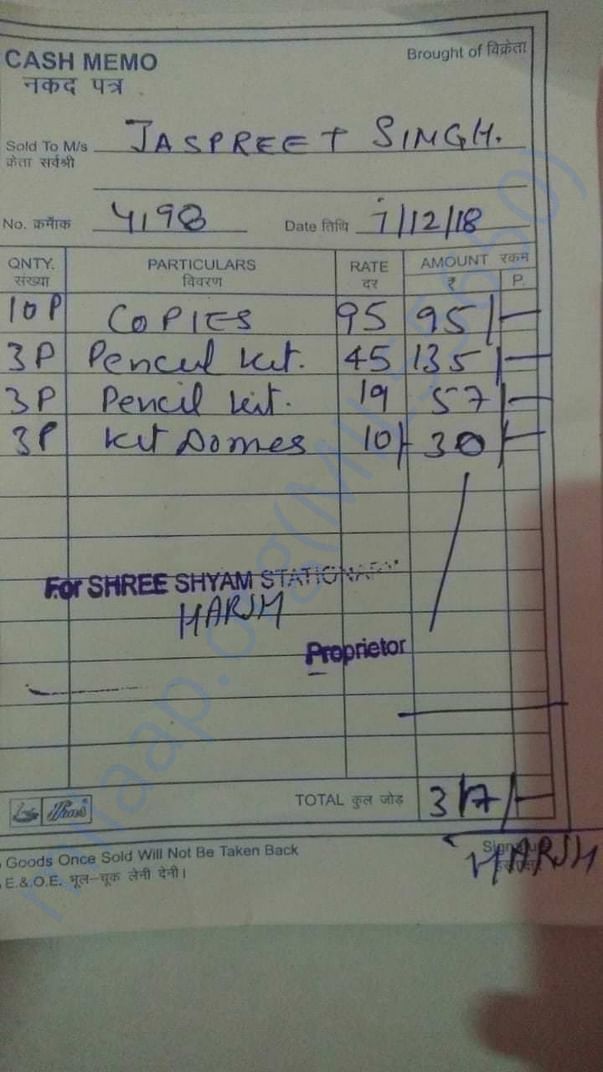 CASH MEMO
नकद पत्र
Brought of विक्रेता
Sold To M/s JASPREET SINGH.
क्रेता सर्वश्री
No. क्रमाँक 4198 Date तिथि 7/12/18
QNTY. PARTICULARS RATE AMOUNT रकम
संख्या विवरण दर ₹ P.
10 P COPIES 95 95/-
3P Pencil kit. 45 135/-
3P Pencil kit. 19 57/-
3P Kit Domes 10/- 30/-
For SHREE SHYAM STATIONARY
HARSH
Proprietor
TOTAL कुल जोड़ 317/-
Goods Once Sold Will Not Be Taken Back
E.& O.E. भूल-चूक लेनी देनी।
HARSH